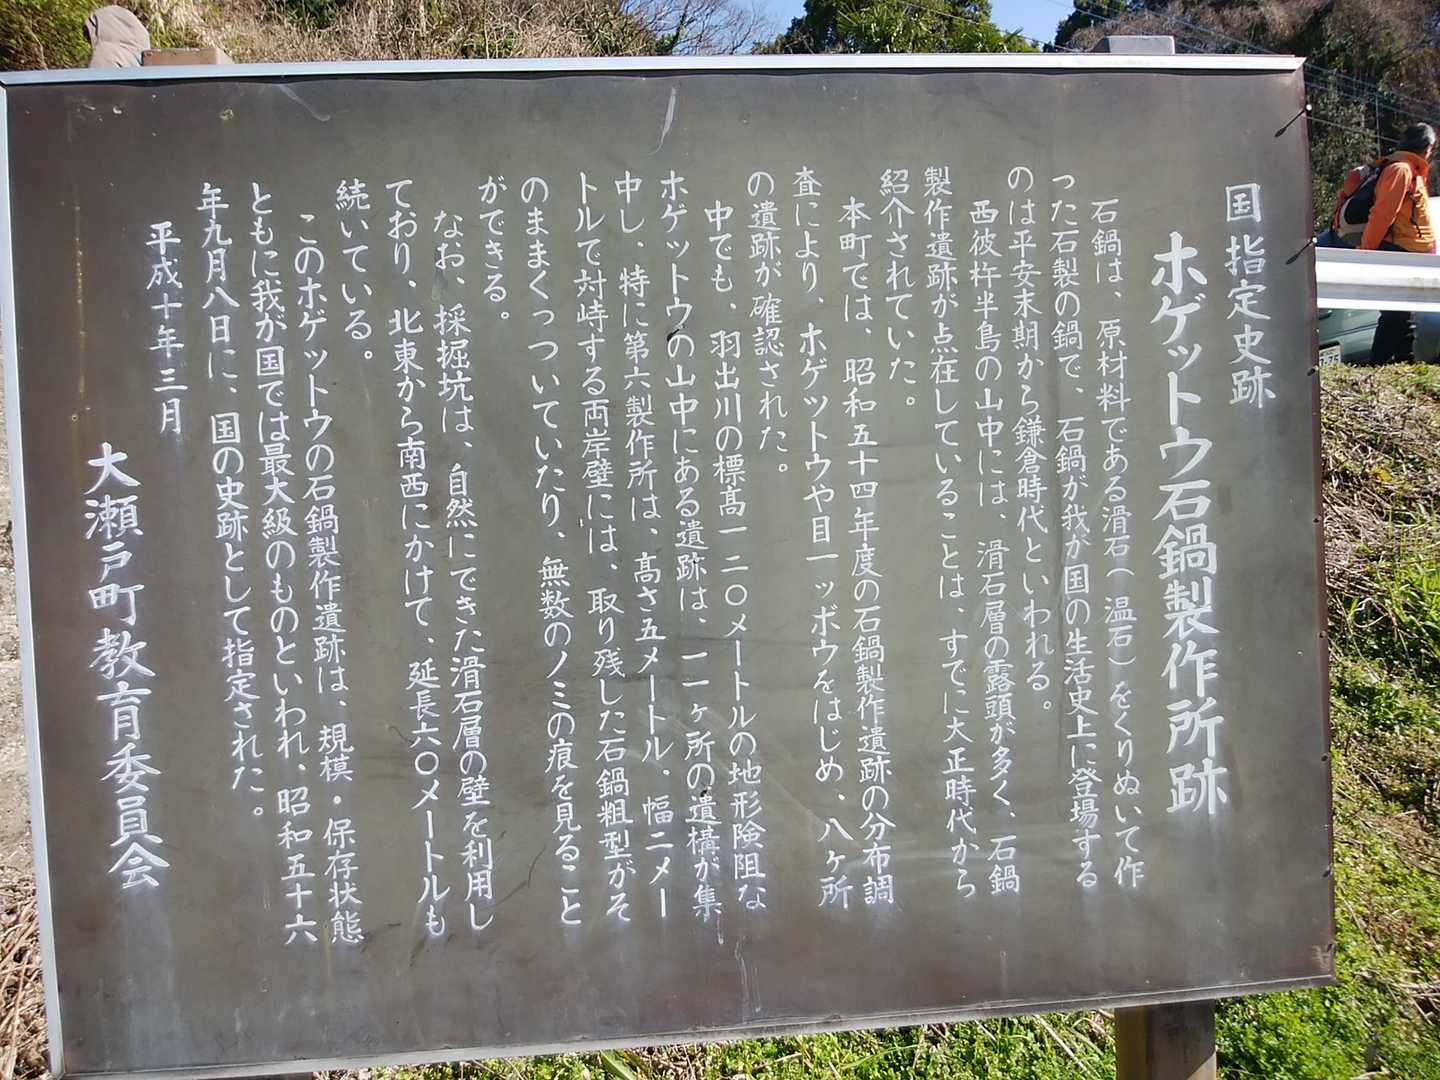 国指定史跡
ホゲットウ石鍋製作所跡
石鍋は、原材料である滑石（温石）をくりぬいて作
った石製の鍋で、石鍋が我が国の生活史上に登場する
のは平安末期から鎌倉時代といわれる。
西彼杵半島の山中には、滑石層の露頭が多く、石鍋
製作遺跡が点在していることは、すでに大正時代から
紹介されていた。
本町では、昭和五十四年度の石鍋製作遺跡の分布調
査により、ホゲットウや目一ッボウをはじめ、八ヶ所
の遺跡が確認された。
中でも、羽出川の標高一二〇メートルの地形険阻な
ホゲットウの山中にある遺跡は、一一ヶ所の遺構が集
中し、特に第六製作所は、高さ五メートル、幅二メー
トルで対峙する両岸壁には、取り残した石鍋粗型がそ
のままくっついていたり、無数のノミの痕を見ること
ができる。
なお、採掘坑は、自然にできた滑石層の壁を利用し
ており、北東から南西にかけて、延長六〇メートルも
続いている。
このホゲットウの石鍋製作遺跡は、規模・保存状態
ともに我が国では最大級のものといわれ、昭和五十六
年九月八日に、国の史跡として指定された。
平成十年三月
大瀬戸町教育委員会